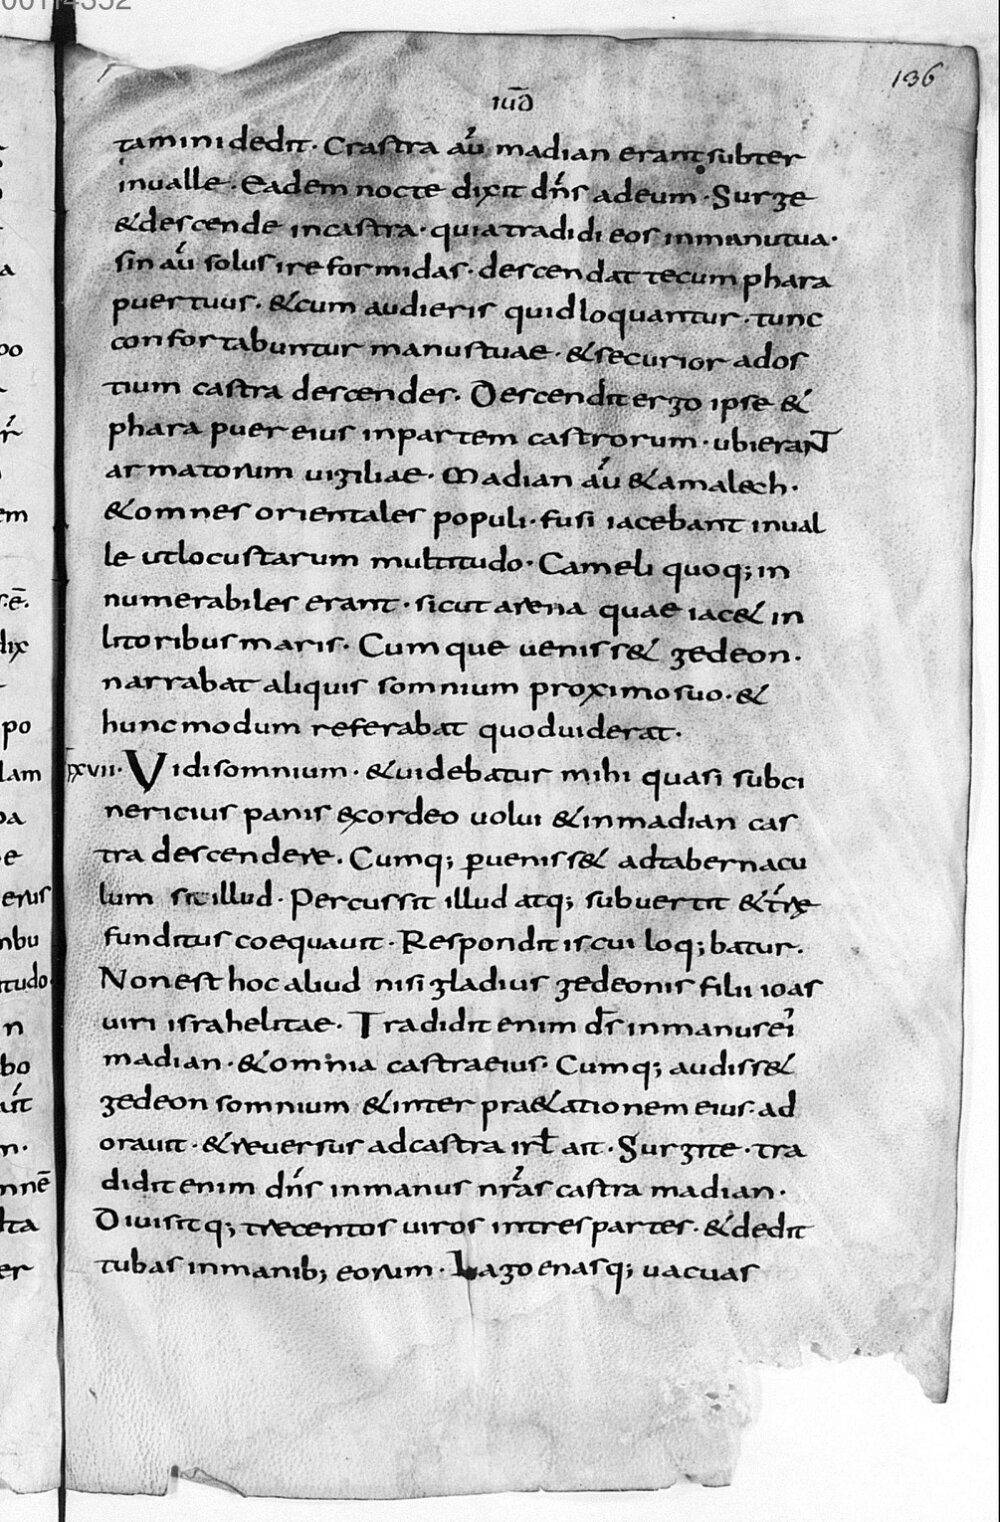 00114352
136
iud̄
tamini dedit. Crastra au᷎ madian erant subter
inualle. Eadem nocte dixit dn̄s adeum. Surge
&descende incastra. quia tradidi eos inmanu tua.
sin au᷎ solus ire formidas. descendat tecum phara
puer tuus. &cum audieris quid loquantur. tunc
confortabuntur manus tuae. &securior ad os
tium castra descendes. Descendit ergo ipse &
phara puer eius inpartem castrorum. ubi erant
armatorum uigiliae. Madian au᷎ &amalech.
&omnes orientales populi. fusi iacebant inual
le ut locustarum multitudo. Cameli quoq; in
numerabiles erant. sicut arena quae iac& in
litoribus maris. Cumque ueniss& gedeon.
narrabat aliquis somnium proximo suo. &
hunc modum referabat quod uiderat.
xxvii. Vidi somnium. &uidebatur mihi quasi subci
nericius panis excordeo uolui &inmadian cas
tra descendere. Cumq; ꝑueniss& adtabernacu
lum sit illud. Percussit illud atq; subuertit &tr̄ę
funditus coequauit. Respondit is cui loq;batur.
Non est hoc aliud nisi gladius gedeonis filii ioas
uiri israhelitae. Tradidit enim dn̄s inmanus ei᷎
madian. &omnia castra eius. Cumq; audiss&
gedeon somnium &inter pra&ationem eius. ad
orauit. &reuersus adcastra irl̄ ait. Surgite. tra
didit enim dn̄s inmanus nr̄as castra madian.
Diuisitq; trecentos uiros intres partes. &dedit
tubas inmanib; eorum. Lagoenasq; uacuas